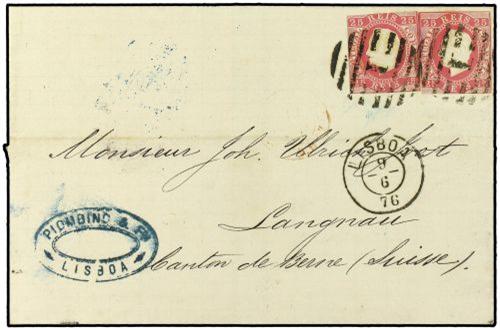 25 REIS 25
25 REIS 25
Monsieur Joh. Ulrich
LISBOA
9
6
76
Langnau
PIOMBINO &
LISBOA
Canton de Berne (Suisse).